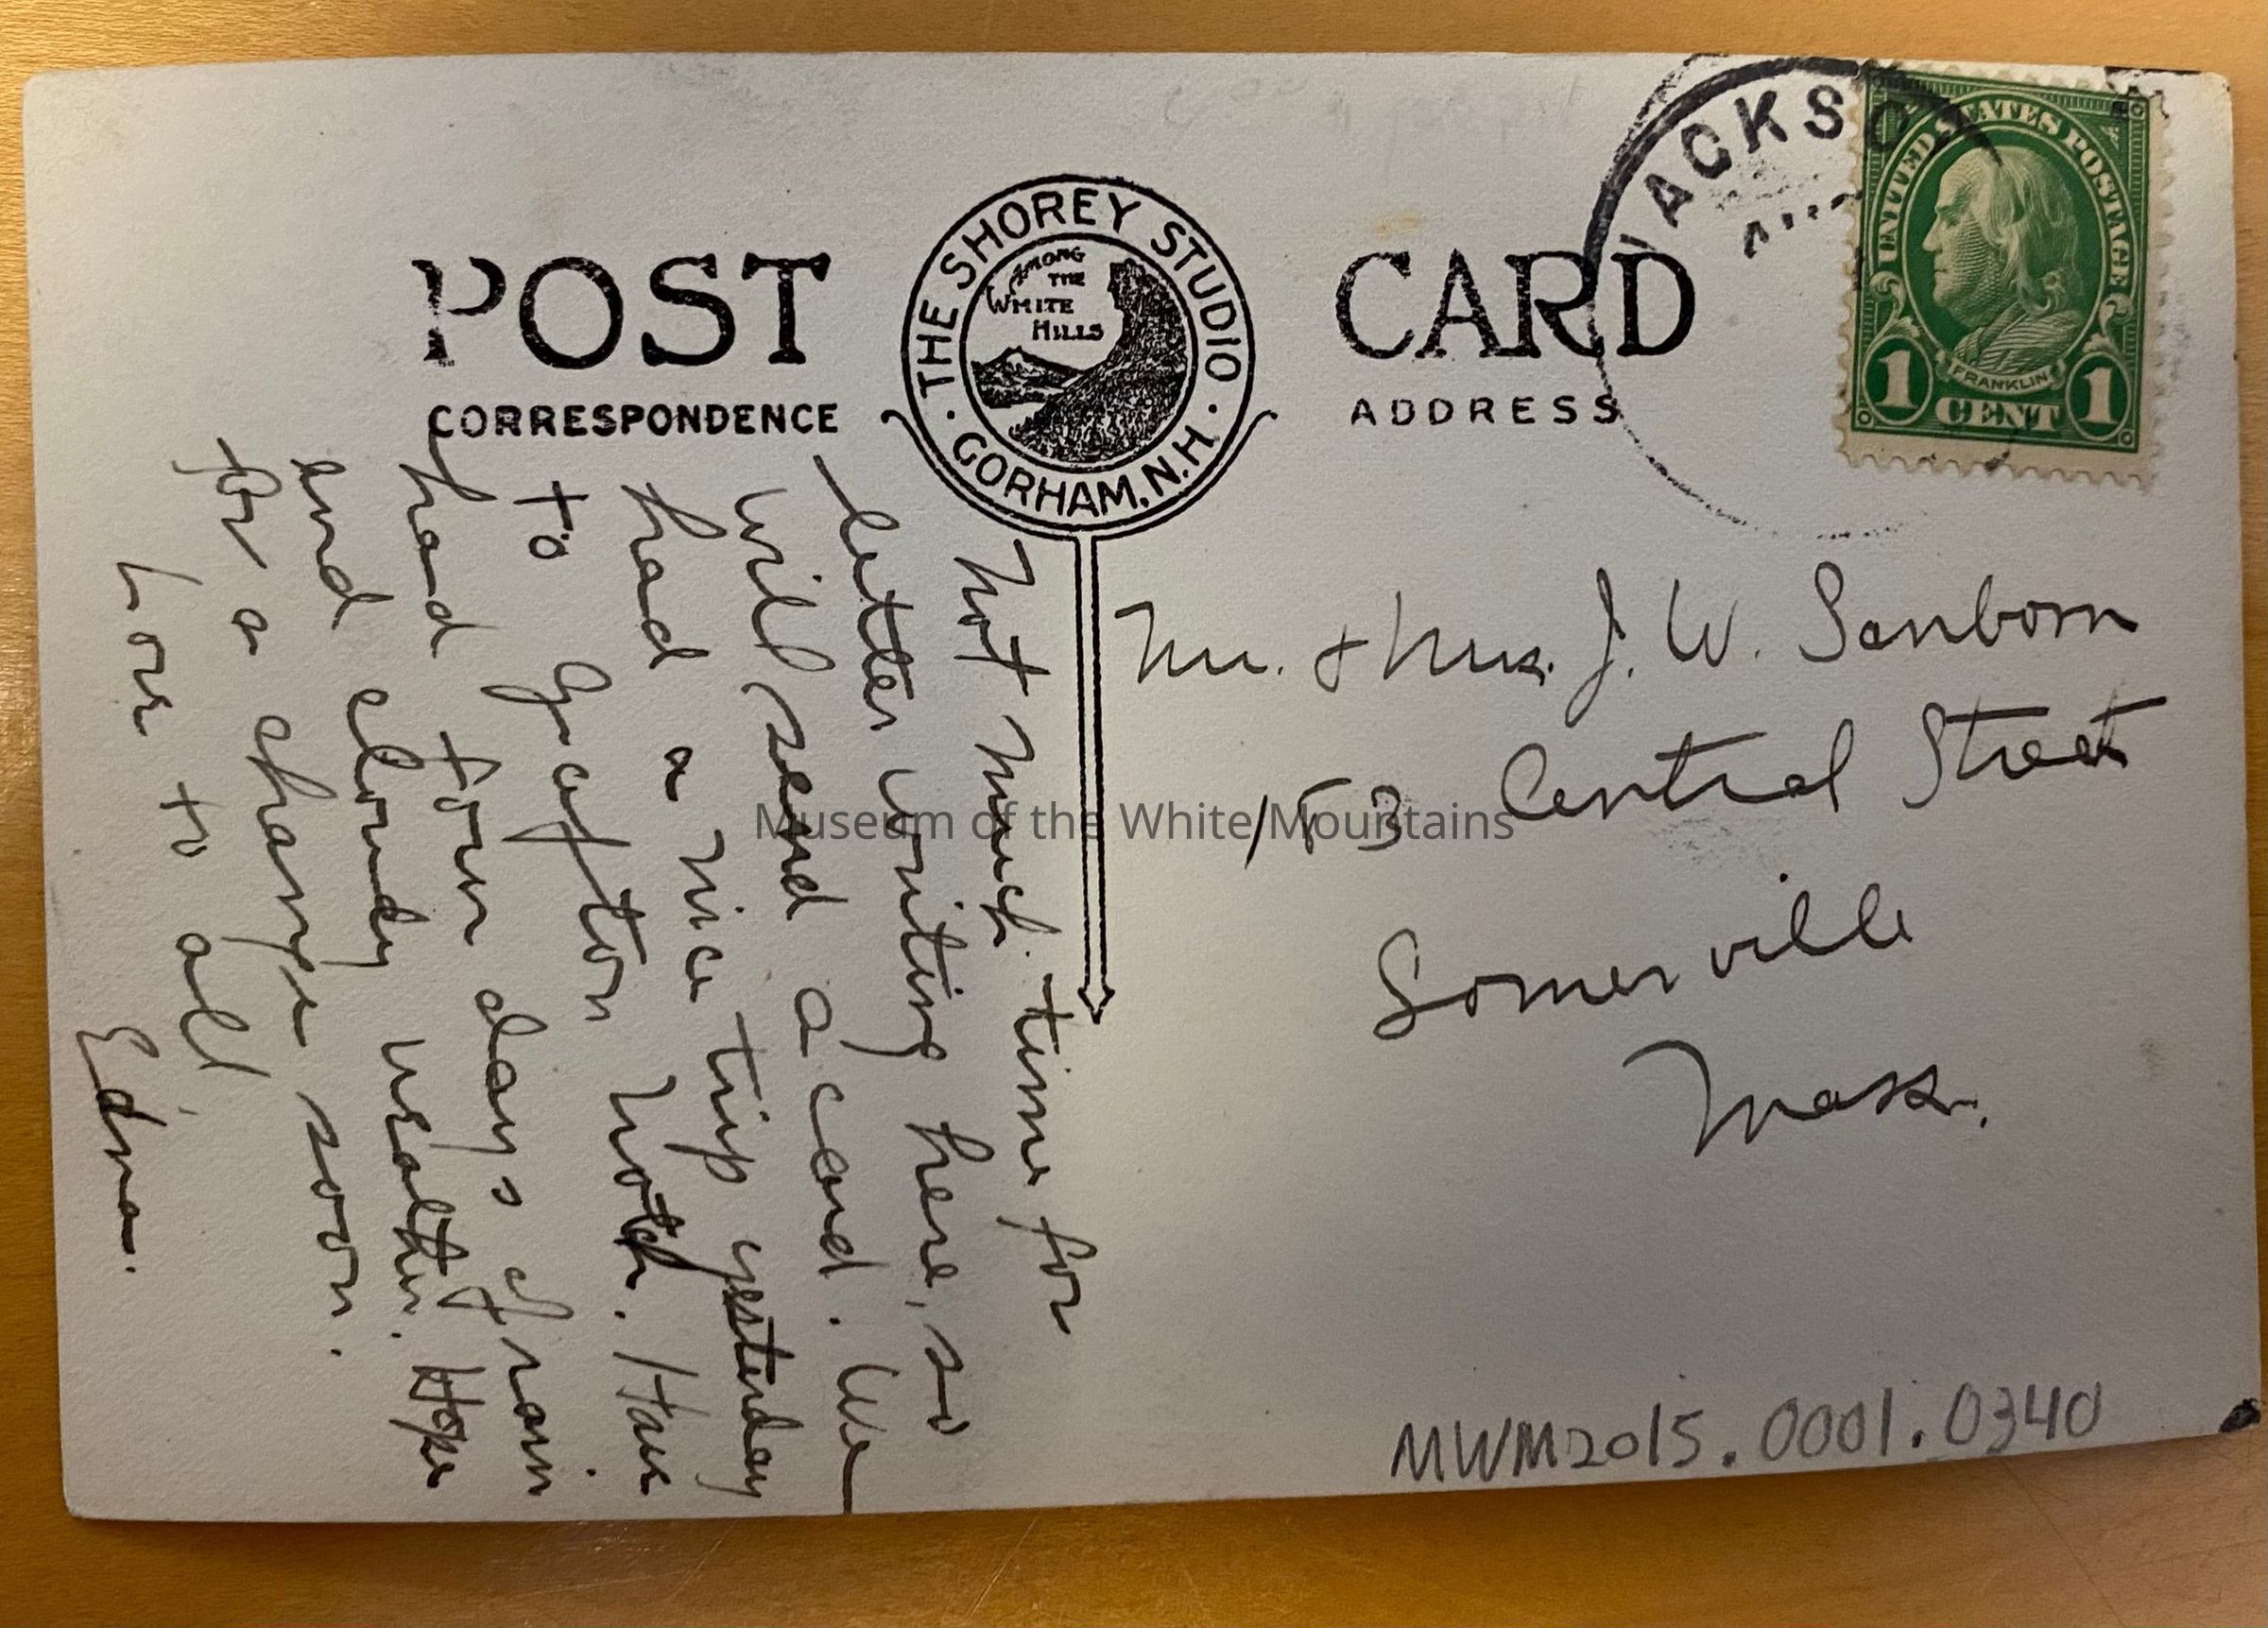 POST CARD
THE SHOREY STUDIO
AMONG
THE
WHITE
HILLS
· GORHAM, N.H. ·
CORRESPONDENCE
ADDRESS
JACKSO
UNITED STATES POSTAGE
FRANKLIN
1 CENT 1
Not much time for
letter writing here, so
will send a card. We
had a nice trip yesterday
to Grafton Notch. Have
had four days of rain
and cloudy weather. Hope
for a change soon.
Love to all
Edna.
Mr. & Mrs. J. W. Sanborn
Central Street
Somerville
Mass.
MWM2015.0001.0340
Museum of the White Mountains